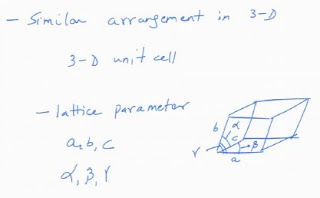 - Similar arrangement in 3-D
3-D unit cell
- lattice parameter
a, b, c
α, β, γ
b α c β γ a